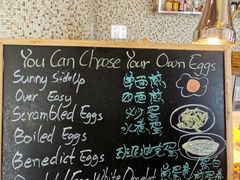 You Can Choose Your Own Eggs
Sunny Side Up 单面煎
Over Easy 双面煎
Scrambled Eggs 炒蛋
Boiled Eggs 水煮蛋
Benedict Eggs 班尼迪克蛋
Egg White Omelet